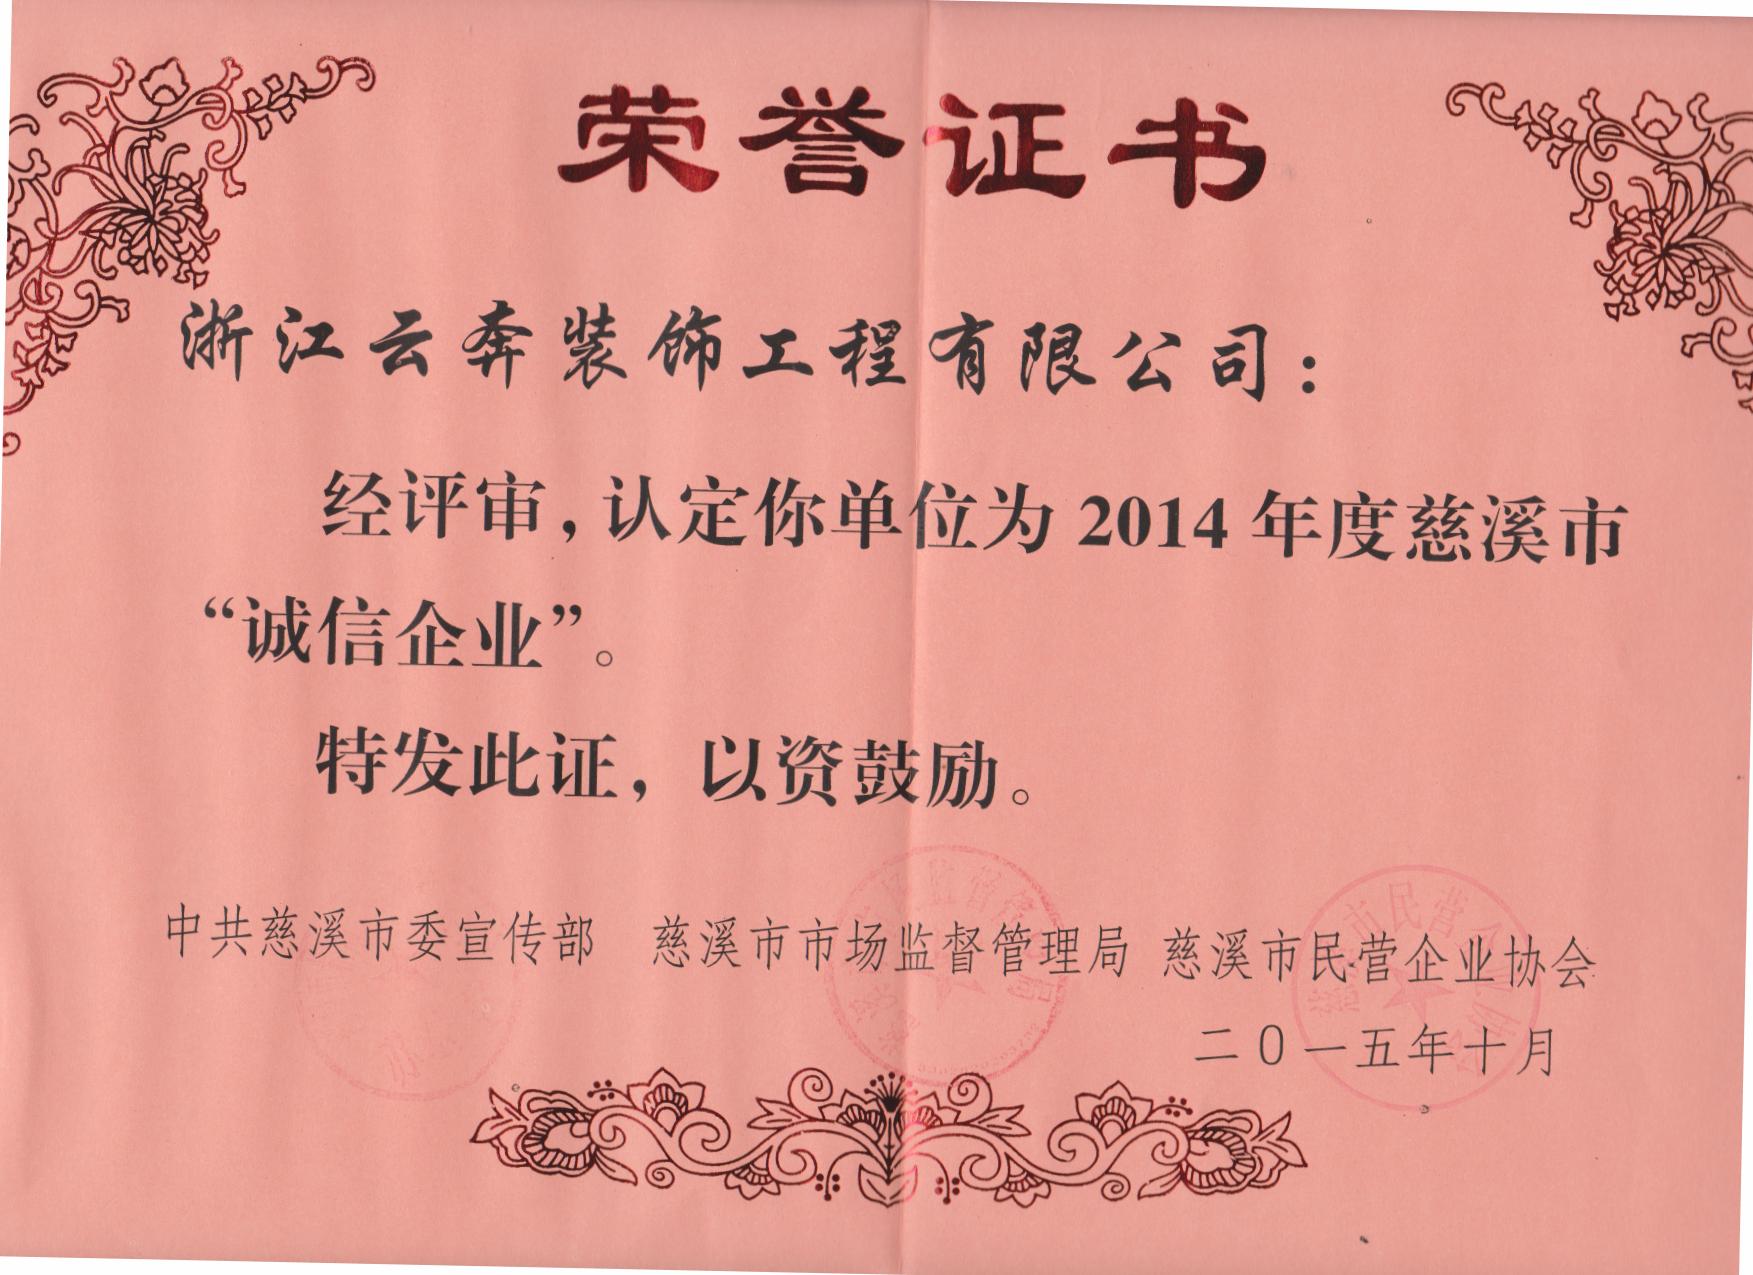 荣誉证书
浙江云奔装饰工程有限公司：
经评审，认定你单位为2014年度慈溪市
“诚信企业”。
特发此证，以资鼓励。
中共慈溪市委宣传部 慈溪市市场监督管理局 慈溪市民营企业协会
二〇一五年十月